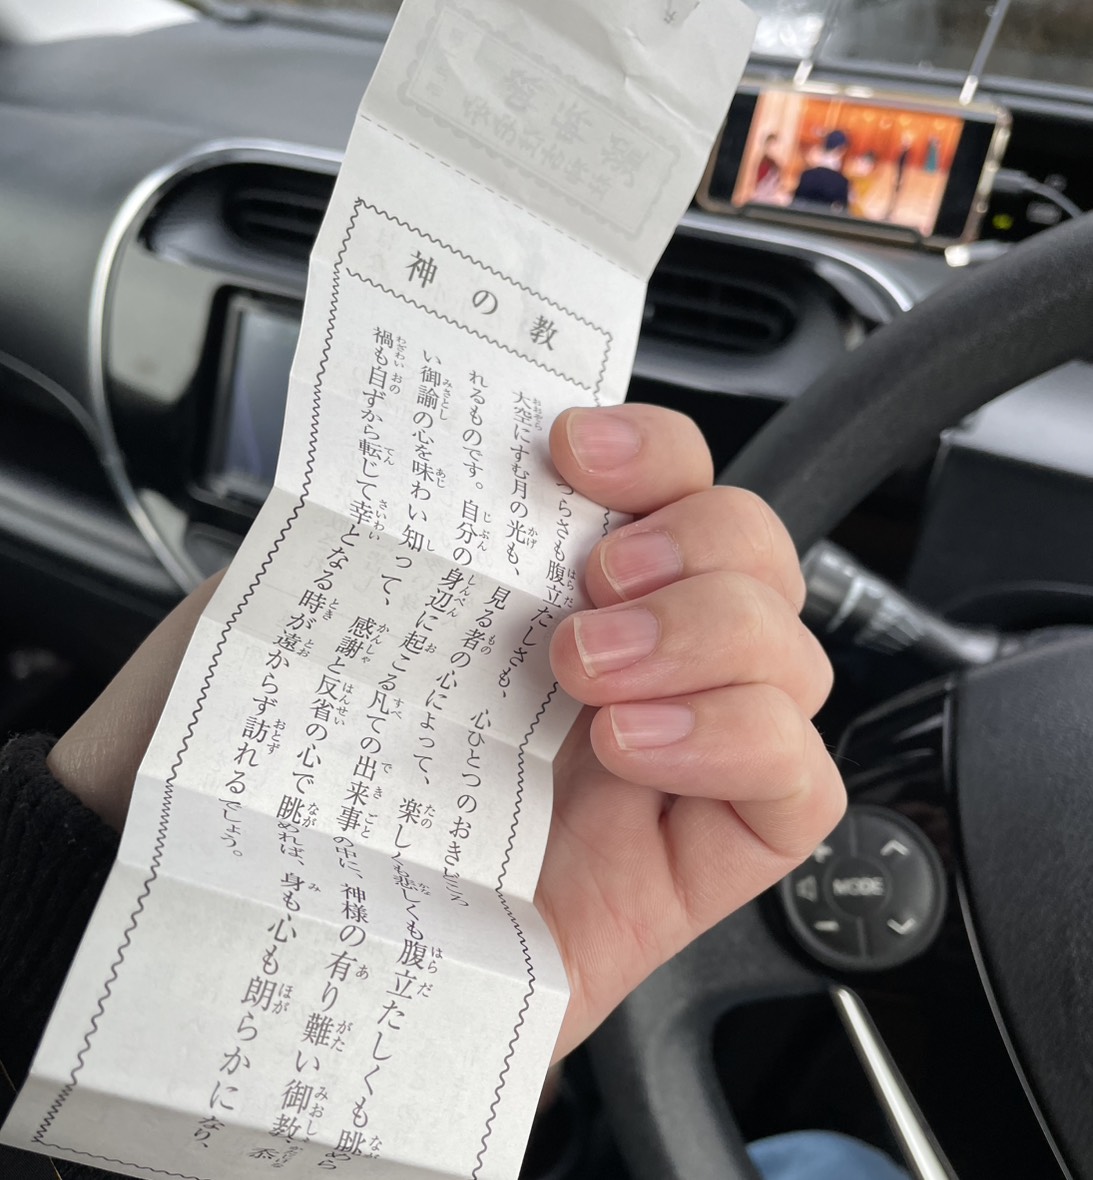 神の教
つらさも腹立たしさも、心ひとつのおきどころ
大空にすむ月の光も、見る者の心によって、楽しくも悲しくも腹立たしくも眺めら
れるものです。自分の身辺に起こる凡ての出来事の中に、神様の有り難い御教、忝
い御諭の心を味わい知って、感謝と反省の心で眺めれば、身も心も朗らかになり、
禍も自ずから転じて幸となる時が遠からず訪れるでしょう。
MODE